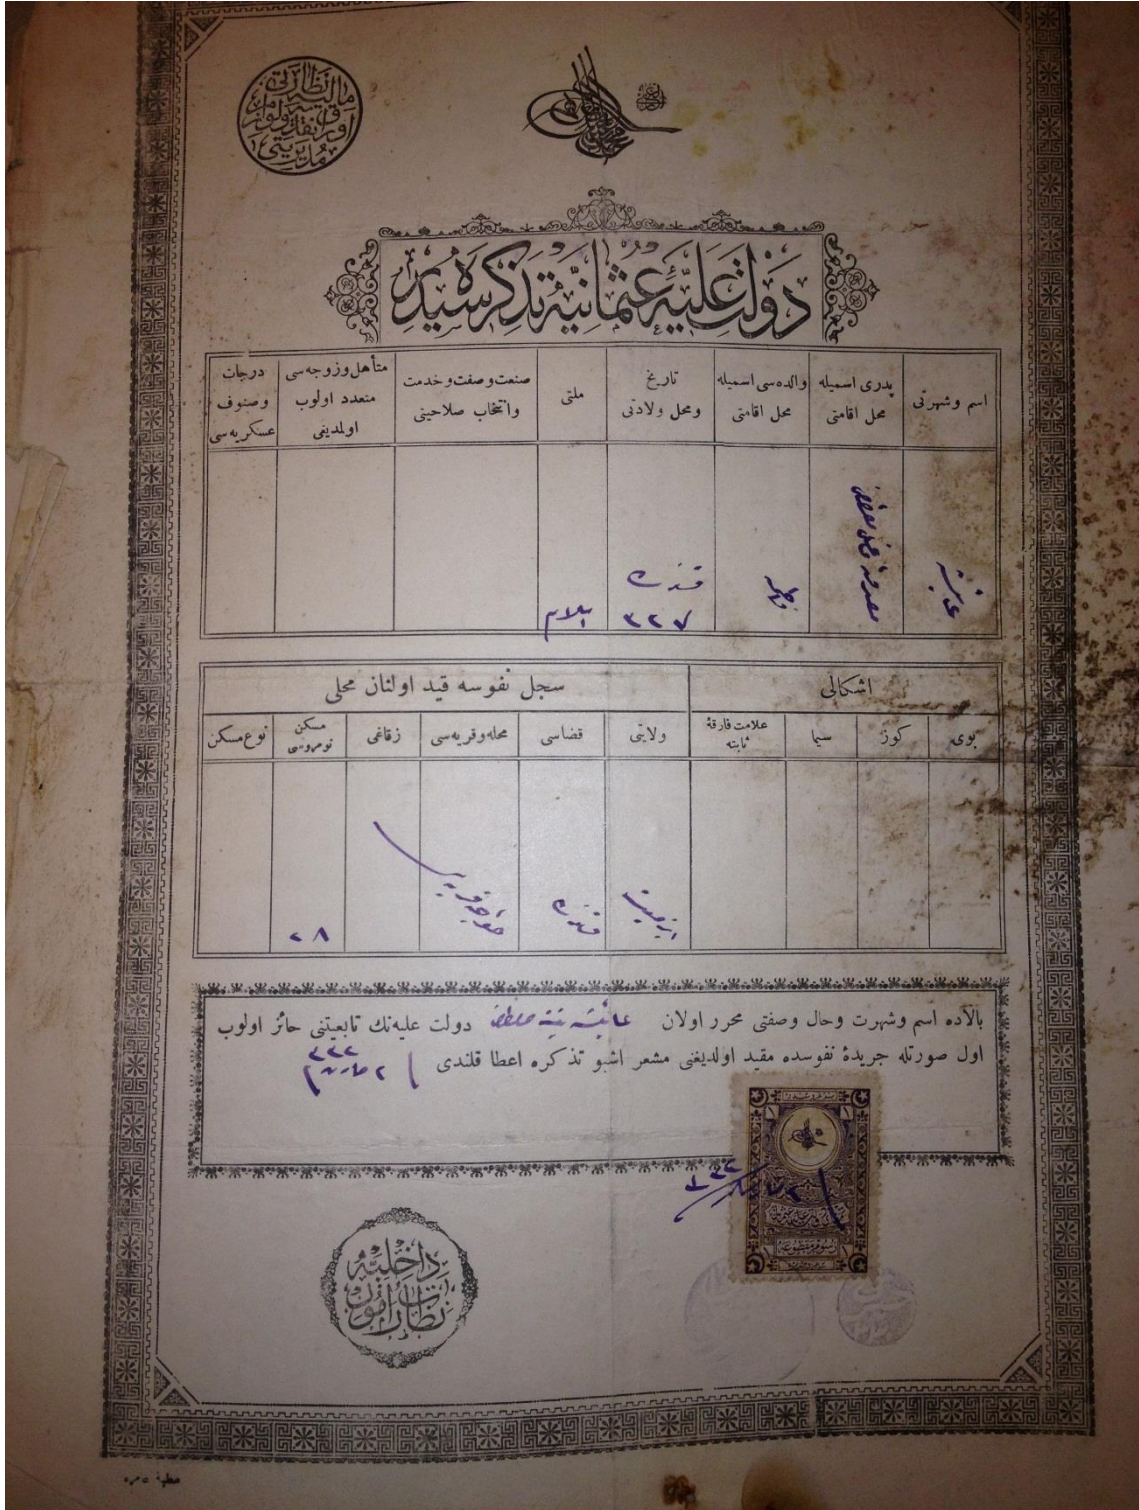 ماليه نظارتى
اوراق نقديه ولوازم
مديريتى
دولت عليهٔ عثمانيه تذكره سيدر
اسم وشهرتى
پدرى اسميله محل اقامتى
والده سى اسميله محل اقامتى
تاريخ ومحل ولادتى
ملتى
صنعت وصفت وخدمت وانتخاب صلاحيتى
متأهل وزوجه سى متعدد اولوب اولمديغى
درجات وصنوف عسكريه سى
عائشه
فاطمه
قندره
٣٢٧
اسلام
اشكالى
سجل نفوسه قيد اولنان محلى
بوى
كوز
سيما
علامت فارقهٔ ثابته
ولايتى
قضاسى
محله وقريه سى
زقاغى
مسكن نومروسى
نوع مسكن
ازميت
قندره
٢٨
بالاده اسم وشهرت وحال وصفتى محرر اولان عائشه بنت دولت عليه نك تابعيتنى حائز اولوب
اول صورتله جريدهٔ نفوسده مقيد اولديغنى مشعر اشبو تذكره اعطا قلندى ٣٣٢
داخليه
نظارتى